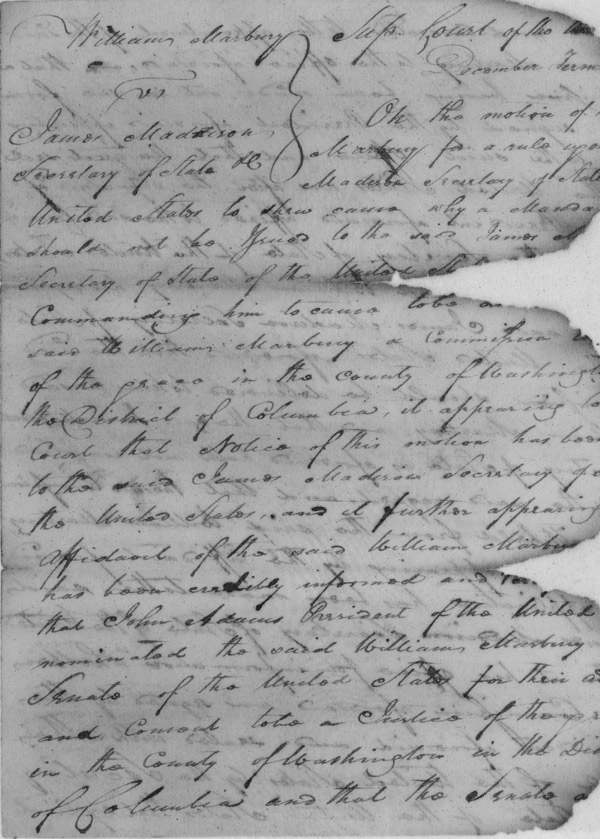 William Marbury } Sup. Court of the
vs December Term
James Madison On the motion of
Secretary of State &c Marbury for a rule upon
Madison Secretary of State
United States to shew cause why a Manda
should not be Issued to the said James M
Secretary of State of the United St
Commanding him to cause to be
said William Marbury a Commission
of the peace in the county of Washingt
the District of Columbia, it appearing to
Court that Notice of this motion has been
to the said James Madison Secretary of
the United States, and it further appearing
affidavit of the said William Marbu
has been credibly informed and
that John Adams President of the United
nominated the said William Marbury
Senate of the United States for their ad
and consent to be a Justice of the p
in the County of Washington in the Dis
of Columbia and that the Senate